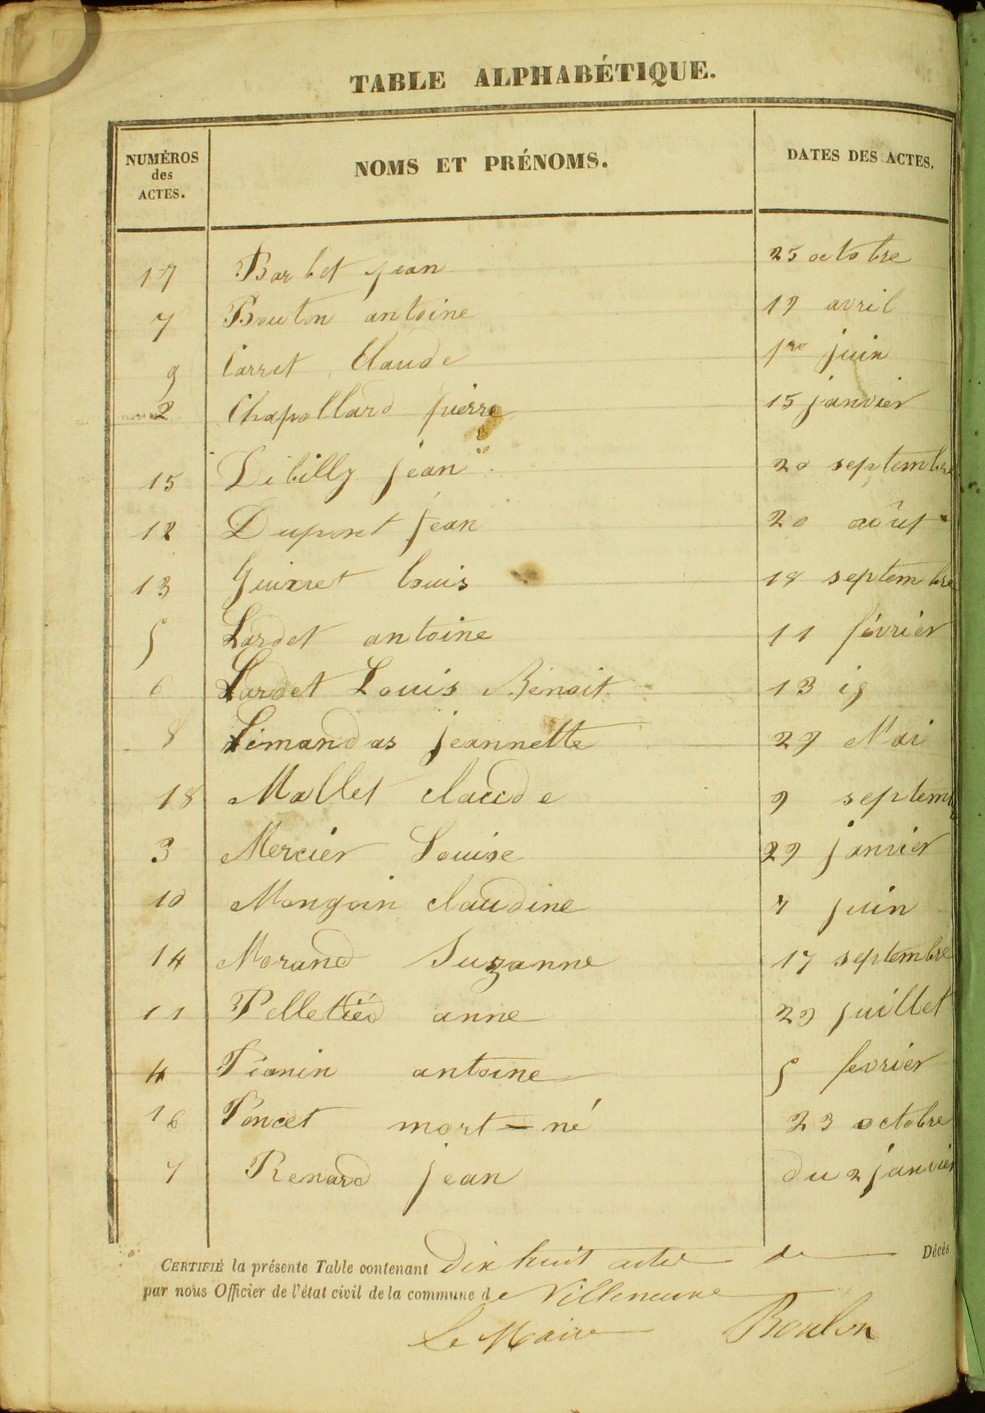 TABLE ALPHABÉTIQUE.
NUMÉROS des ACTES. NOMS ET PRÉNOMS. DATES DES ACTES.
17 Barbet jean 25 octobre
7 Bouton antoine 19 avril
9 Carret Claude 1er juin
2 Chapollard pierre 15 janvier
15 Débilly jean 20 septembre
12 Dupont jean 20 août
13 Louis 18 septembre
5 Lardet antoine 11 février
6 Lardet Louis Bénoit 13 ig
8 Lémandas jeannette 29 Mai
18 Mallet claude 9 septemb
3 Mercier Louise 29 janvier
10 Mongoin claudine 7 juin
14 Morand Suzanne 17 septembre
11 Pelletier anne 29 juillet
4 antoine 5 fevrier
16 Poncet mort-né 23 octobre
7 Renard jean du 2 janvier
CERTIFIÉ la présente Table contenant Dix huit actes de Décès
par nous Officier de l'état civil de la commune de Villeneuve
Le Maire